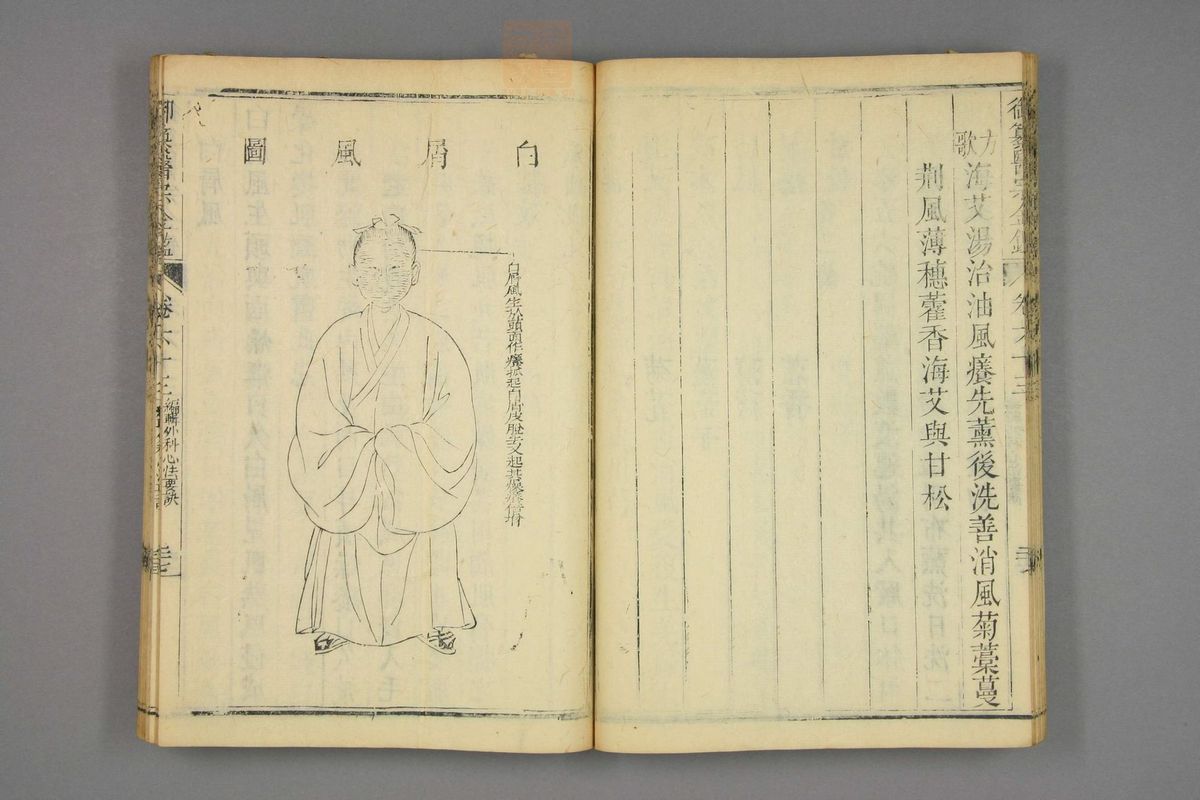 方歌
海艾湯治油風癢先薰後洗善消風菊藁蔓
荊風薄穗藿香海艾與甘松
白屑風圖
白屑風生於頭面作癢抓起白屑皮脫去又起其癢倍增
御纂醫宗金鑑
卷六十三
編輯外科心法要訣